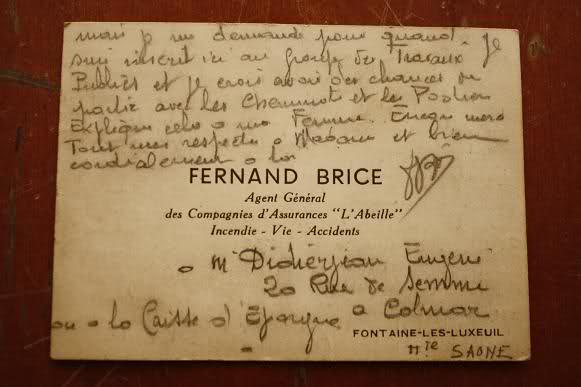 mais je me demande pour quand. Je
suis inscrit ici au groupe des Travaux
Publics et je crois avoir des chances de
partir avec les Cheminots et les Postiers
Explique cela a ma Femme. Encore merci
Tout mes respects a Madame et bien
cordialement a toi
FERNAND BRICE
Agent Général
des Compagnies d'Assurances "L'Abeille"
Incendie - Vie - Accidents
a Mr Didierjean Eugène
20 Rue de
ou a la Caisse d'Epargne a Colmar
FONTAINE-LES-LUXEUIL
Hte SAONE